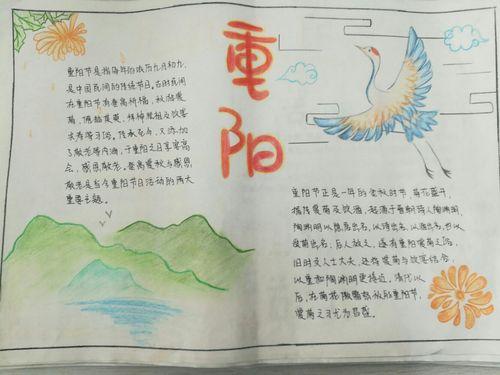 重阳
重阳节是指每年的农历九月初九,
是中国民间的传统节日。古时民间
在重阳节有登高祈福、秋游赏
菊、佩插茱萸、拜神祭祖及饮宴
求寿等习俗。传承至今,又添加
了敬老等内涵,于重阳之日享宴高
会,感恩敬老。登高赏秋与感恩
敬老是当今重阳节日活动的两大
重要主题。
重阳节正是一年的金秋时节,菊花盛开,
据传赏菊及饮酒,起源于晋朝诗人陶渊明,
陶渊明以隐居出名,以诗出名,以酒出名,也以
爱菊出名,后人效之,遂有重阳赏菊之俗,
旧时文人士大夫,还将赏菊与饮宴结合,
以重和陶渊明更接近。清代以
后,赏菊之习尤为昌盛。